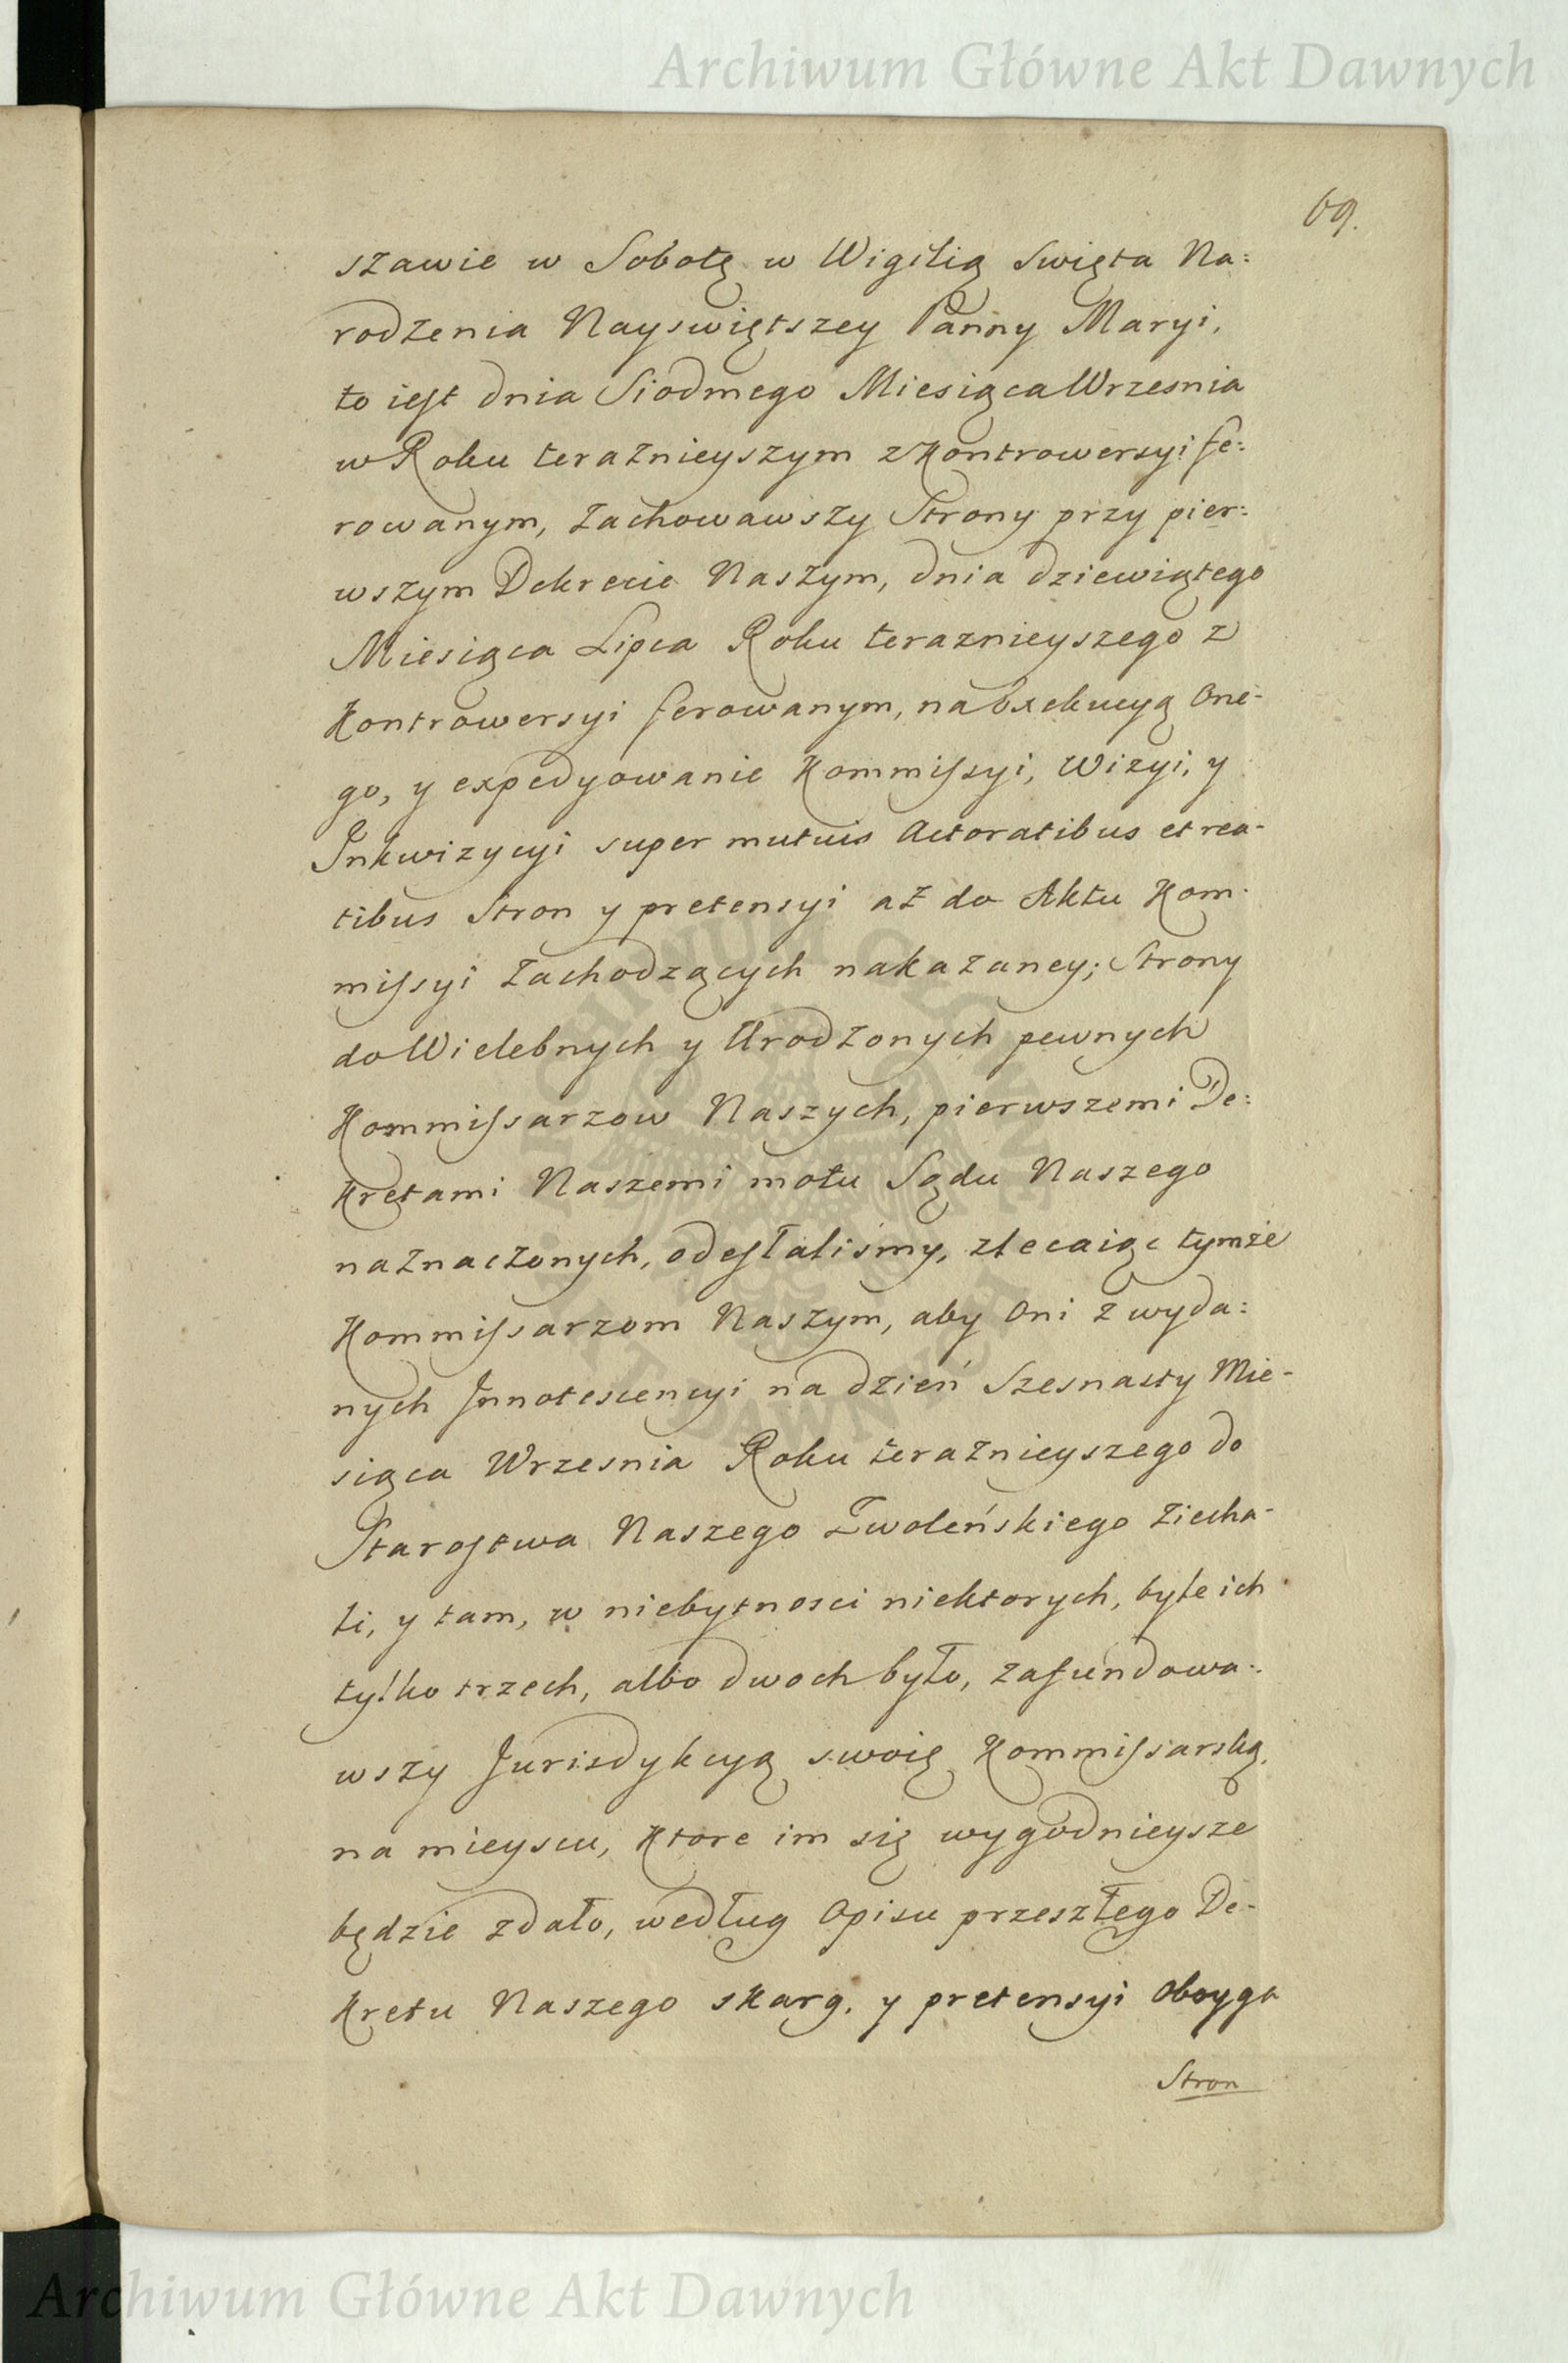 Archiwum Główne Akt Dawnych
69.
szawie w Sobotę w Wigilią Swięta Na:
rodzenia Nayswiętszey Panny Maryi,
to iest dnia Siodmego Miesiąca Wrzesnia
w Roku terażnieyszym z Kontrowersyi fe:
rowanym, zachowawszy Strony przy pier:
wszym Dekrecie Naszym, dnia dziewiątego
Miesiąca Lipca Roku teraznieyszego z
Kontrowersyi ferowanym, na Exekucyą One-
go, y expedyowanie Kommissyi, Wizyi, y
Inkwizycyi super mutuis Actoratibus et rea-
tibus Stron y pretensyi aż do Aktu Kom-
missyi zachodzących nakazaney; Strony
do Wielebnych y Urodzonych pewnych
Kommissarzow Naszych, pierwszemi De:
kretami Naszemi motu Sądu Naszego
naznaczonych, odesłaliśmy, zlecaiąc tymże
Kommissarzom Naszym, aby Oni z wyda:
nych Innotescencyi na dzień Szesnasty Mie-
siąca Wrzesnia Roku terażnieyszego do
Starostwa Naszego Zwoleńskiego ziecha-
li, y tam, w niebytnosci niektorych, byle ich
tylko trzech, albo dwoch było, zafundowa-
wszy Jurisdykcyą swoię Kommissarską,
na mieyscu, ktore im się wygodnieysze
będzie zdało, według Opisu przeszłego De-
kretu Naszego skarg, y pretensyi oboyga
Stron
ARCHIWUM GŁÓWNE AKT DAWNYCH
Archiwum Główne Akt Dawnych